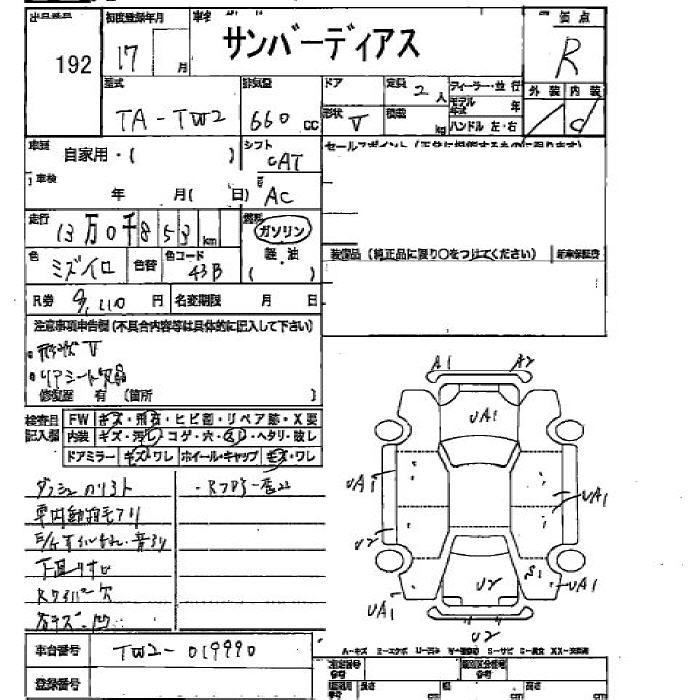 出品番号 初度登録年月 車名 評価点
192 17 月 サンバーディアス R
型式 排気量 ドア 定員 2人 ディーラー・並行 外装 内装
TA-TW2 660 cc 形状 V 積載 kg モデル年式 年 ハンドル 左・右 d
車歴 自家用・( ) シフト CAT セールスポイント(正常に機能するものに限ります)
車検 年 月( 日) AC
走行 13万0千853km 燃料 ガソリン
色 ミズイロ 色替 色コード 43B 軽・油 ( ) 装備品(純正品に限り〇をつけてください) 新車保証書
R券 9,110円 名変期限 月 日
注意事項申告欄(不具合内容等は具体的に記入して下さい)
・形状 V
・リアシート欠品
修復歴 有 (箇所 )
検査員記入欄 FW キズ・飛石・ヒビ割・リペア跡・X要
内装 キズ・汚レ・コゲ・穴・スレ・ヘタリ・破レ
ドアミラー キズ・ワレ ホイール・キャップ キズ・ワレ
A1 A2
UA1
UA1 UA1
U2
U2 S1
UA1 UA1
U2
Rワイパー欠
車台番号 TW2-019990
登録番号
A-キズ E-エクボ U-凹ミ
長さ cm 幅 cm 高さ cm